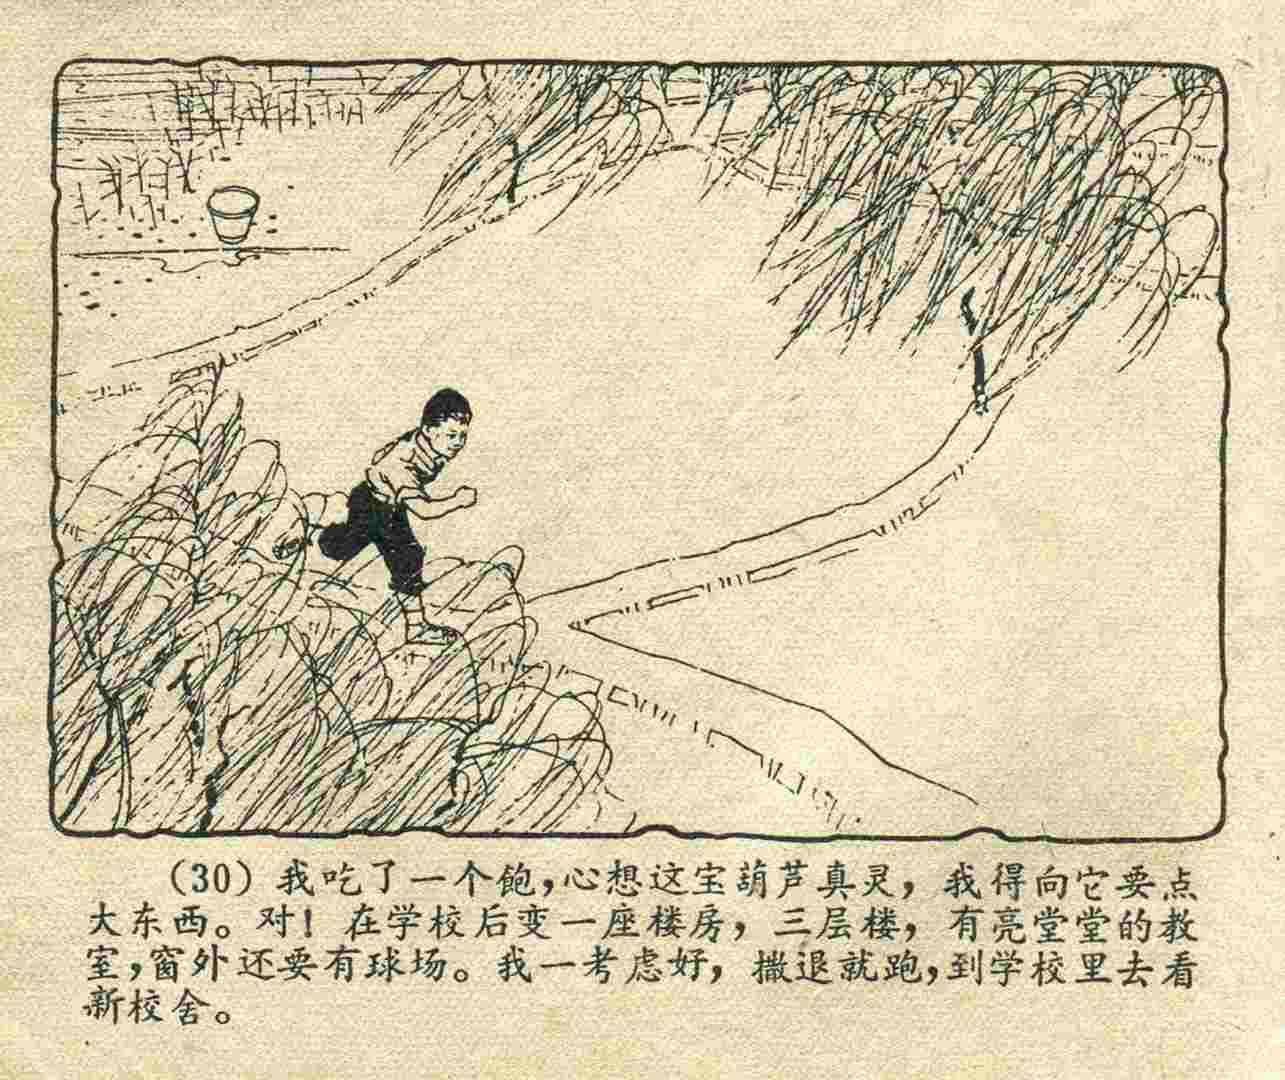 (30)我吃了一个飽,心想这宝葫芦真灵,我得向它要点
大东西。对!在学校后变一座楼房,三层楼,有亮堂堂的教
室,窗外还要有球场。我一考虑好,撒退就跑,到学校里去看
新校舍。